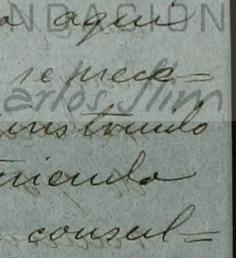 NDACIÓN
a aquí
se nece=
Carlos Slim
instruido
niendo
consul=